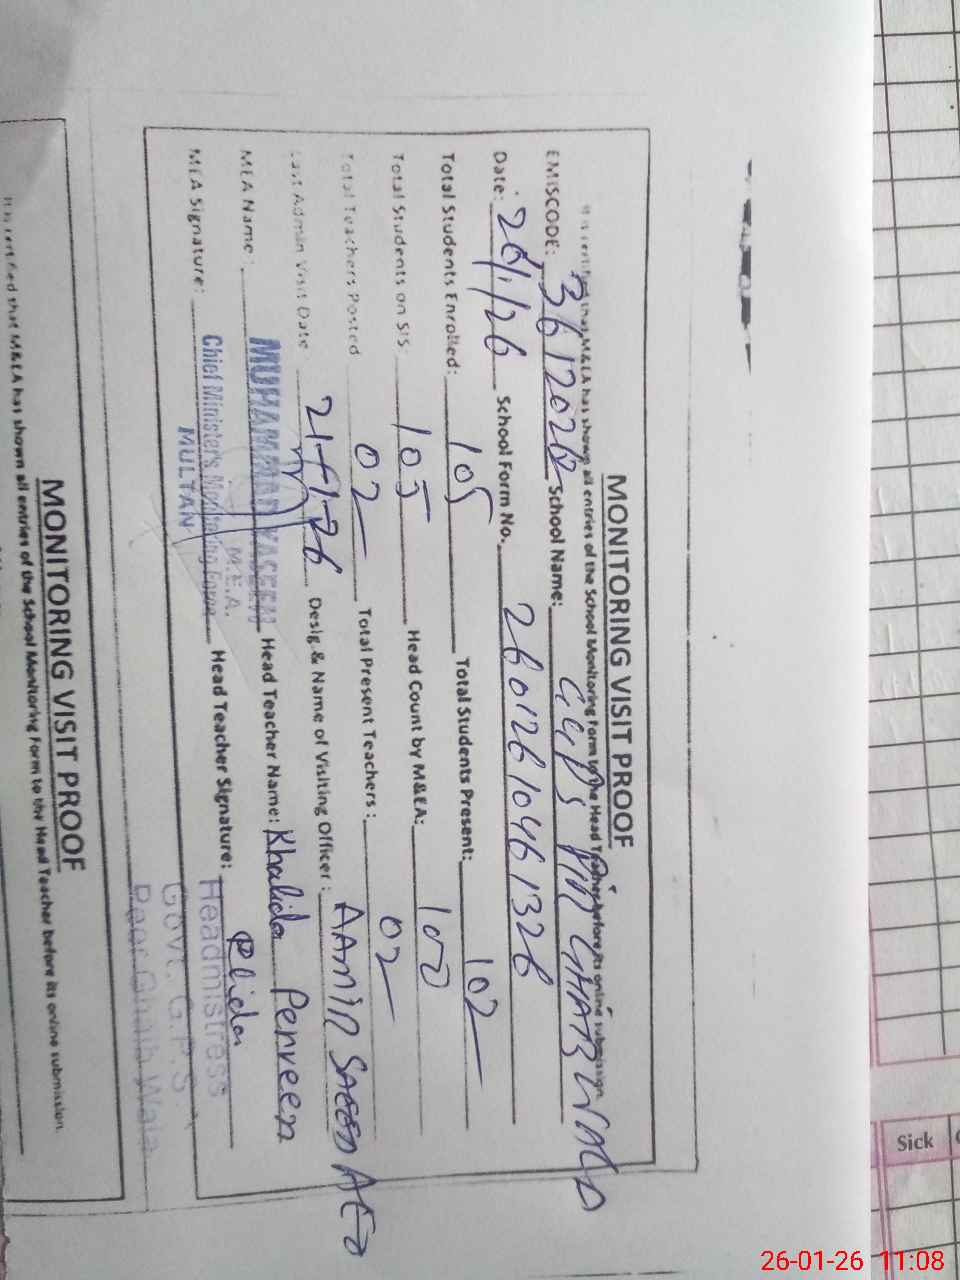 MONITORING VISIT PROOF
It is certified that M&EA has shown all entries of the School Monitoring Form to the Head Teacher before its online submission.
EMISCODE: School Name: GGPS PIR GHAIB WALA
Date: 26/1/26 School Form No. 26012610461326
Total Students Enrolled: 105 Total Students Present: 102
Total Students on SIS: 105 Head Count by M&EA: 100
Total Teachers Posted 02 Total Present Teachers: 02
Last Admin Visit Date 21-1-26 Desig & Name of Visiting Officer: AAMIR SAEED AEO
MEA Name: MUHAMMAD YASEEN Head Teacher Name: Khalida Perveen
M.E.A.
MEA Signature: Chief Minister's Monitoring Force Head Teacher Signature:
MULTAN
Headmistress
Govt. G.P.S
Peer Ghaib Wala
MONITORING VISIT PROOF
It is certified that M&EA has shown all entries of the School Monitoring Form to the Head Teacher before its online submission.
Sick
26-01-26 11:08